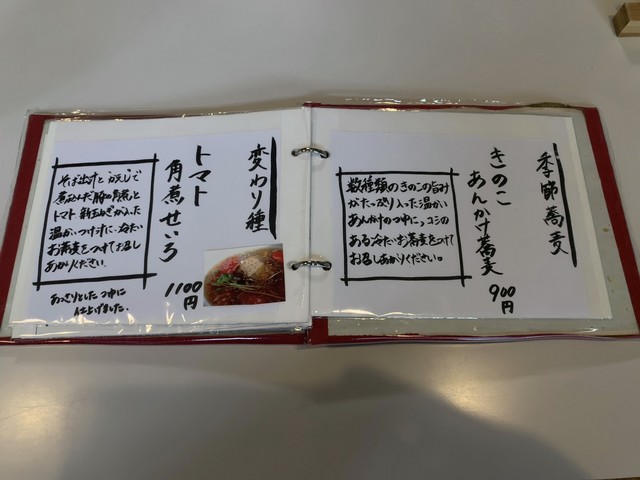 季節蕎麦
きのこ
あんかけ蕎麦
900円
数種類のきのこの旨み
がたっぷり入った温かい
あんかけのつゆに、コシの
ある冷たいお蕎麦をつけて
お召しあがりください。
変わり種
トマト
角煮せいろ
1100円
そば出汁と かえしで
煮込んだ豚の角煮と
トマト 新玉ねぎが入った
温かいつけ汁に冷たい
お蕎麦をつけてお召し
あがりください
あっさりとした つゆに
仕上げました。